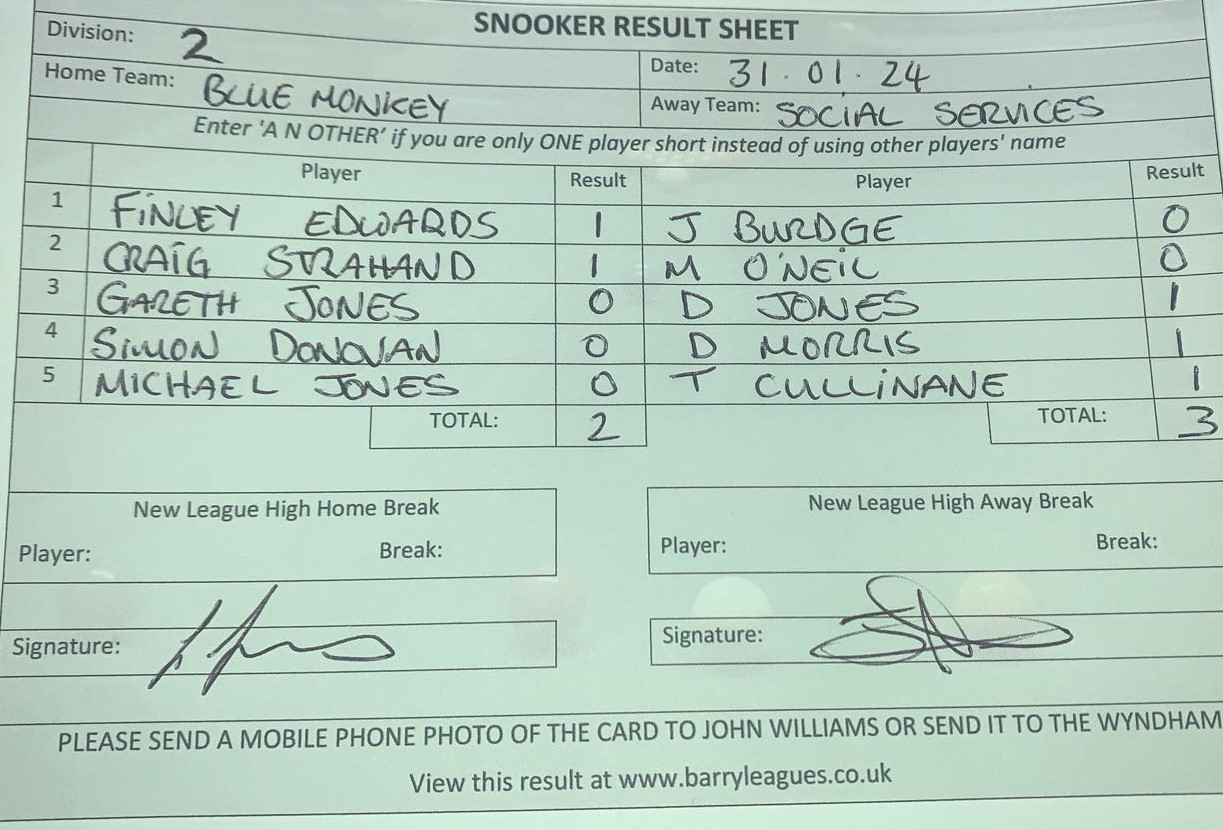 SNOOKER RESULT SHEET
Division: 2
Date: 31.01.24
Home Team: BLUE MONKEY
Away Team: SOCIAL SERVICES
Enter 'A N OTHER' if you are only ONE player short instead of using other players' name
Player Result Player Result
1 FINLEY EDWARDS 1 J BURDGE 0
2 CRAIG STRAHAND 1 M O'NEIL 0
3 GARETH JONES 0 D JONES 1
4 SIMON DONOVAN 0 D MORRIS 1
5 MICHAEL JONES 0 T CULLINANE 1
TOTAL: 2 TOTAL: 3
New League High Home Break
Player: Break:
New League High Away Break
Player: Break:
Signature:
Signature:
PLEASE SEND A MOBILE PHONE PHOTO OF THE CARD TO JOHN WILLIAMS OR SEND IT TO THE WYNDHAM
View this result at www.barryleagues.co.uk